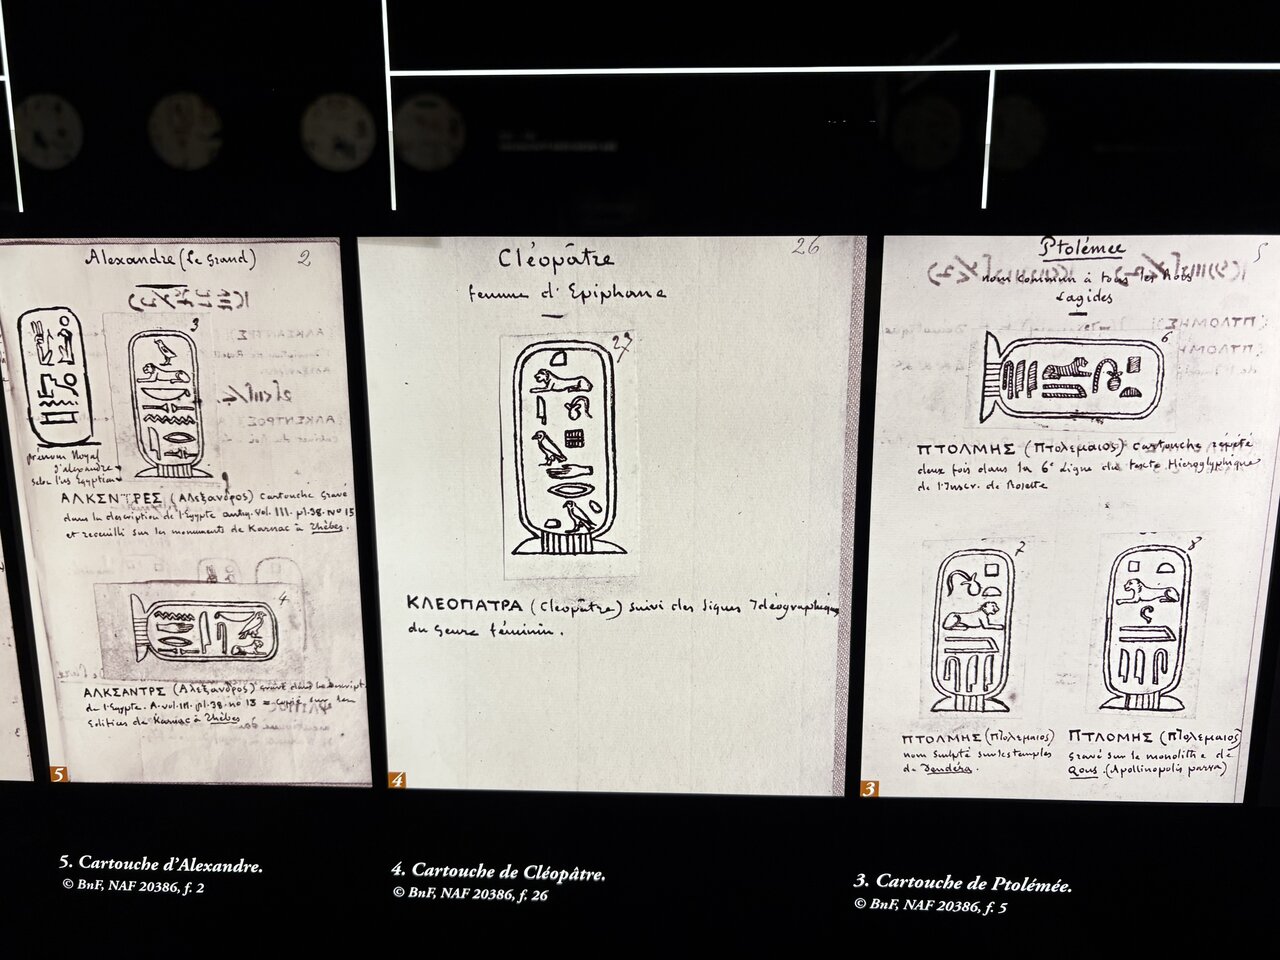 Alexandre (Le Grand) 2
3
prénom Royal
d'alexandre
selon les Egyptiens
ΑΛΚΣΝΤΡΕΣ (Αλεξανδρος) cartouche gravé
dans la description de l'Egypte antiq. vol. III. pl. 38. No 15
et recueilli sur les monuments de Karnac à Thèbes.
4
ΑΛΚΣΑΝΤΡΣ (Αλεξανδρος) gravé dans la descript.
de l'Egypte. A. vol. III. pl. 38. no 13 = sur les
Edifices de Karnac à Thèbes
5
5. Cartouche d'Alexandre.
© BnF, NAF 20386, f. 2
26
Cléopâtre
femme d'Epiphane
27
ΚΛΕΟΠΑΤΡΑ (Cléopâtre) suivi des signes Idéographiques
du Genre féminin.
4
4. Cartouche de Cléopâtre.
© BnF, NAF 20386, f. 26
Ptolémée 5
nom commun à tous les Rois
Lagides
6
ΠΤΟΛΜΗΣ (Πτολεμαιος) cartouche répété
deux fois dans la 6e ligne du texte Hieroglyphique
de l'Inscr. de Rosette
7
8
ΠΤΟΛΜΗΣ (Πτολεμαιος)
nom sculpté sur les temples
de Dendéra.
ΠΤΛΟΜΗΣ (Πτολεμαιος)
gravé sur le monolithe de
Qous. (Apollinopolis parva)
3
3. Cartouche de Ptolémée.
© BnF, NAF 20386, f. 5